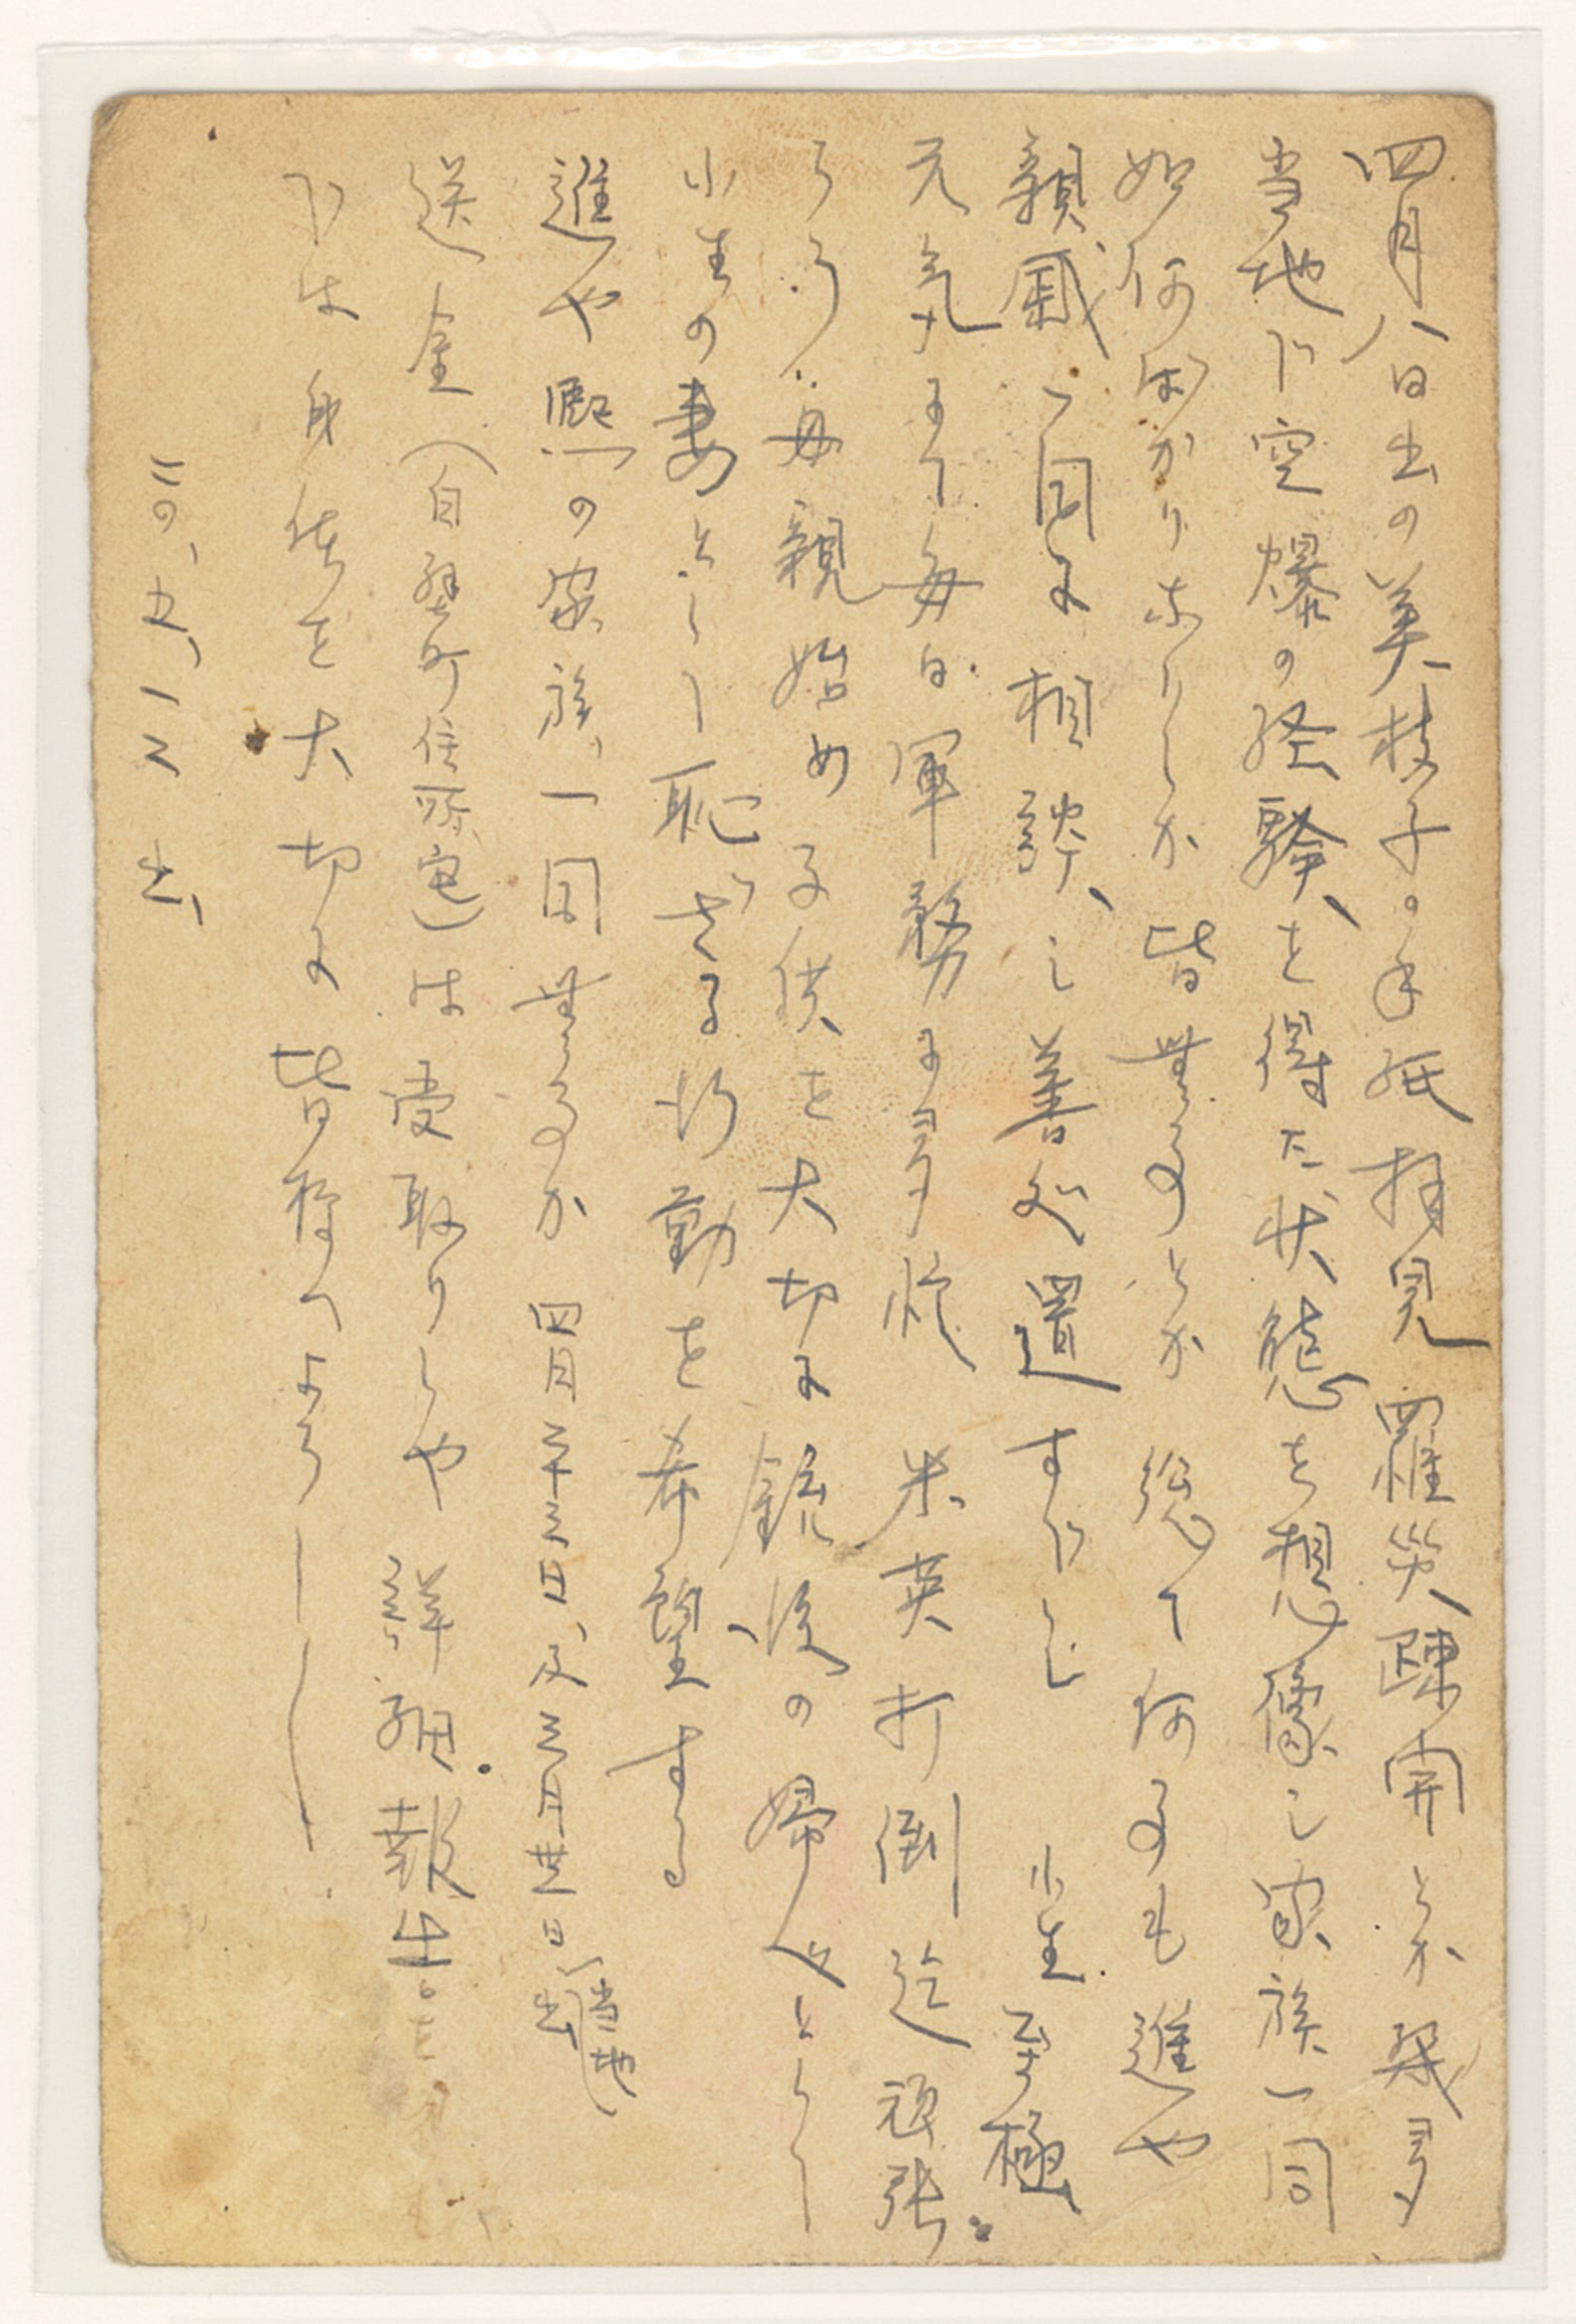 四月八日出の美枝子の手紙拝見 罹災疎開とか幾多
当地に空爆の経験を得た状態を想像し家族一同
如何ばかりなりしか皆無事とか 総て何事も進や
親戚一同に相談し善処置すべし 小生至極
元気にて毎日軍務に多忙 米英打倒迄頑張
らう 母親始め子供を大切に銃後の婦人として
小生の妻として恥ざる行動を希望する
進や熙の家族一同無事か 四月二十三日及三月廿日(当地)出
送金(白壁町住所宛)は受取りしや 詳細報告を
では身体を大切に皆様へよろしく
二〇、五、一二出、